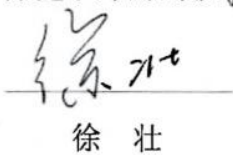 徐壮
徐 壮